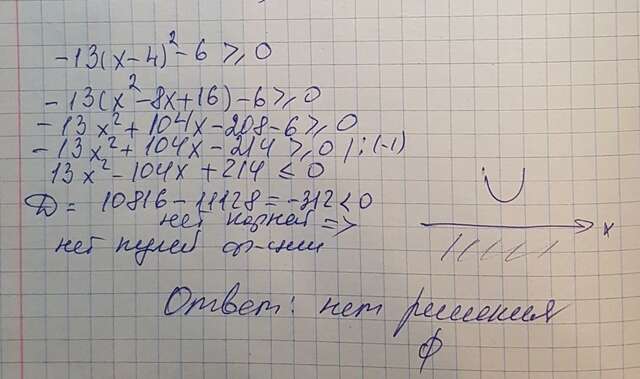 -13(x-4)² - 6 ⩾ 0
-13(x² - 8x + 16) - 6 ⩾ 0
-13x² + 104x - 208 - 6 ⩾ 0
-13x² + 104x - 214 ⩾ 0 / : (-1)
13x² - 104x + 214 ≤ 0
D = 10816 - 11128 = -312 < 0
нет корней =>
нет нулей ф-ции
x
Ответ: нет решения
∅